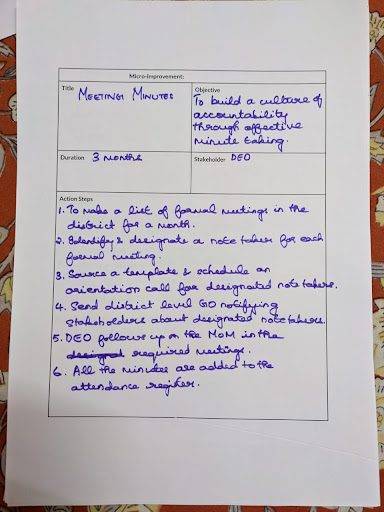 Micro-improvement:
Title
MEETING MINUTES
Objective
To build a culture of
accountability
through effective
minute taking.
Duration 3 months
Stakeholder DEO
Action Steps
1. To make a list of formal meetings in the
district for a month.
2. Identify & designate a note taker for each
formal meeting.
3. Source a template & schedule an
orientation call for designated note takers.
4. Send district level GO notifying
stakeholders about designated note takers.
5. DEO follows up on the MoM in the
required meetings.
6. All the minutes are added to the
attendance register.